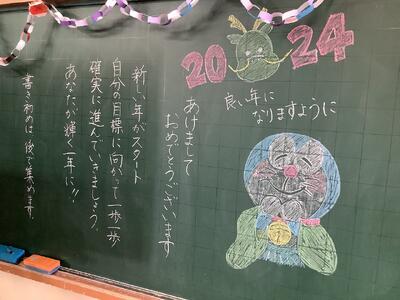 2024
良い年に
なりますように
あけまして
おめでとうございます
新しい年がスタート
自分の目標に向かって一歩一歩
確実に進んでいきましょう。
あなたが輝く一年に!!
書き初めは後で集めます。